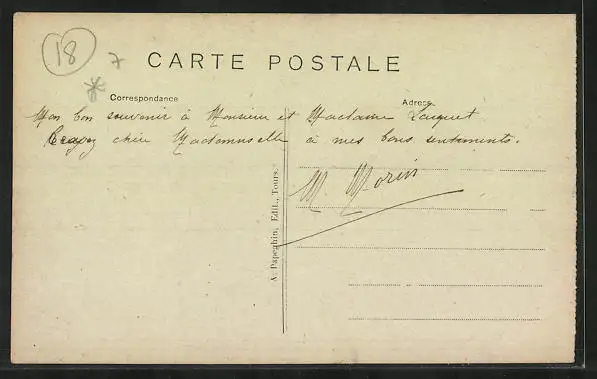 18
7
*
CARTE POSTALE
Correspondance
Adresse
Mon bon souvenir à Monsieur et Madame Louquet
Croyez chère Mademoiselle à mes bons sentiments.
M. Morin
A. Papeghin, Edit., Tours.